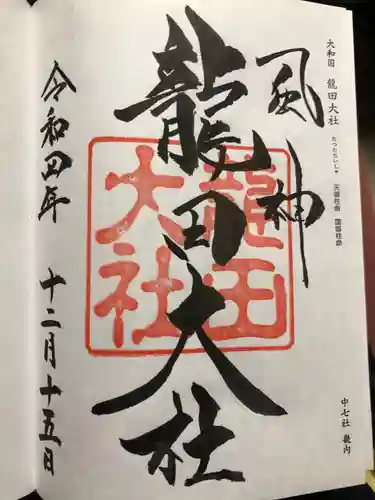 大和国 龍田大社
たつたたいしゃ
天御柱命 国御柱命
中七社 畿内
風神
龍田大社
龍田
大社
令和四年 十二月十五日